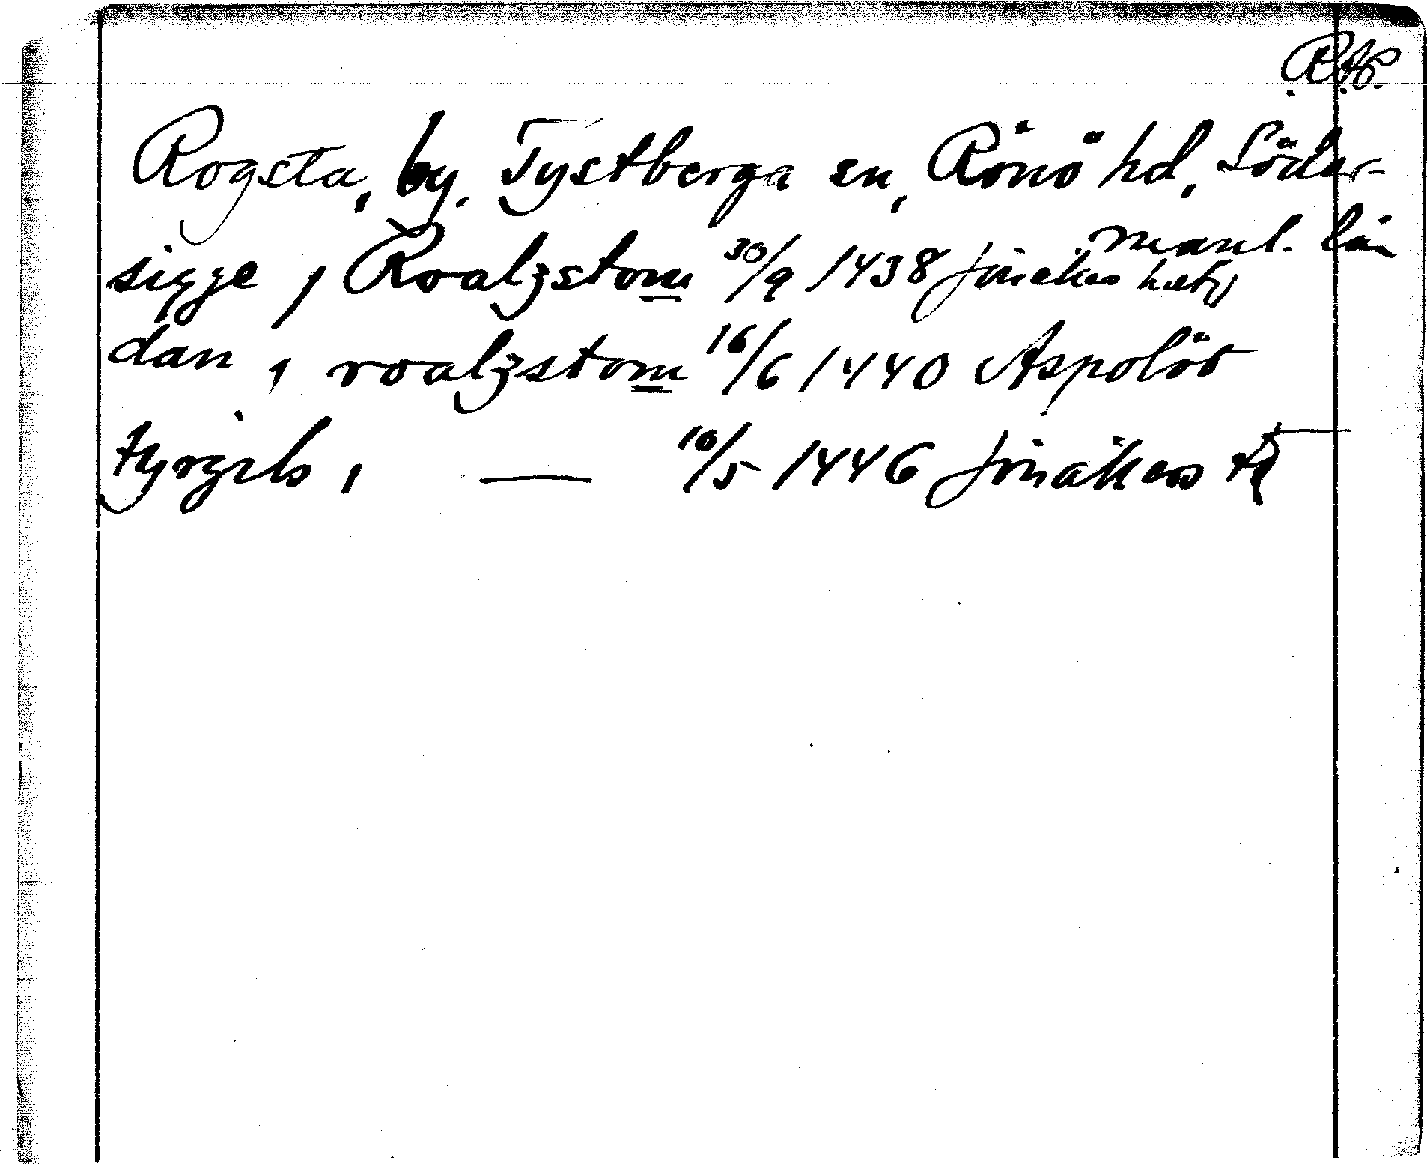 R.A.P.
Rogsta, by, Tystberga sn, Rönö hd, Söder-
manl. län
sigge i Roalzstom 30/9 1438 Jönekes hetz
dan i roalzstom 16/6 1440 Aspolöt
tyrgils i — 10/5 1446 Jönakers